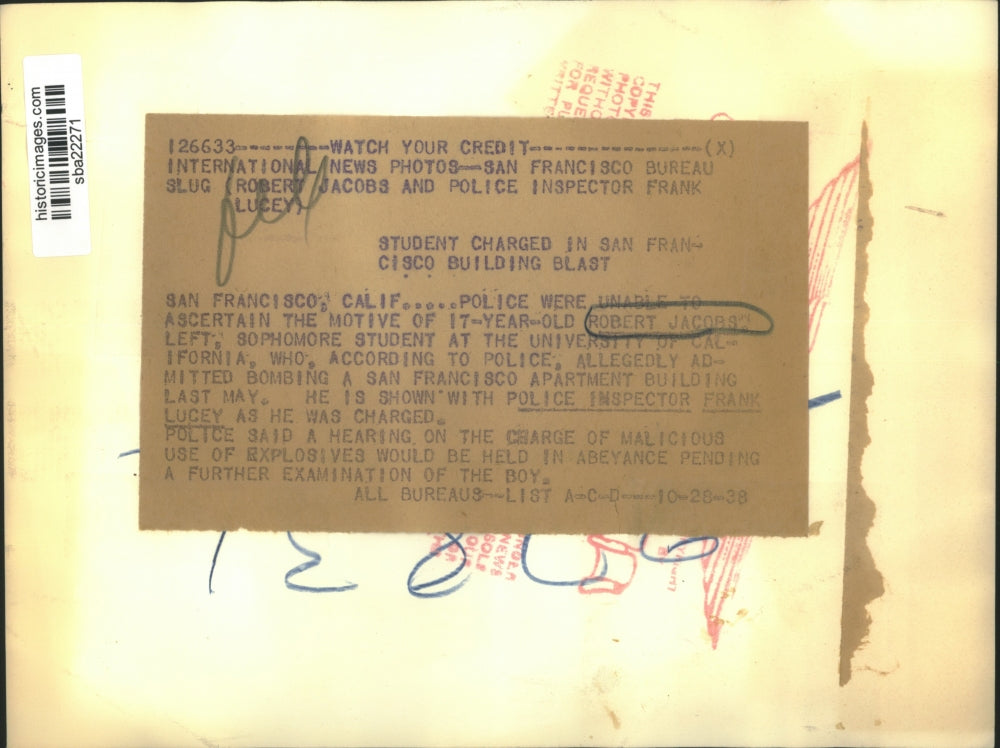 historicimages.com
sba22271
THIS
COPY
PHOT
WITHO
REQUE
FOR PU
126633--------WATCH YOUR CREDIT---------------(X)
INTERNATIONAL NEWS PHOTOS--SAN FRANCISCO BUREAU
SLUG (ROBERT JACOBS AND POLICE INSPECTOR FRANK
LUCEY)
STUDENT CHARGED IN SAN FRAN-
CISCO BUILDING BLAST
SAN FRANCISCO, CALIF.....POLICE WERE UNABLE TO
ASCERTAIN THE MOTIVE OF 17-YEAR-OLD ROBERT JACOBS,
LEFT, SOPHOMORE STUDENT AT THE UNIVERSITY OF CAL-
IFORNIA, WHO, ACCORDING TO POLICE, ALLEGEDLY AD-
MITTED BOMBING A SAN FRANCISCO APARTMENT BUILDING
LAST MAY. HE IS SHOWN WITH POLICE INSPECTOR FRANK
LUCEY AS HE WAS CHARGED.
POLICE SAID A HEARING ON THE CHARGE OF MALICIOUS
USE OF EXPLOSIVES WOULD BE HELD IN ABEYANCE PENDING
A FURTHER EXAMINATION OF THE BOY.
ALL BUREAUS--LIST A-C-D---10-28-38
NEWS
SOLE